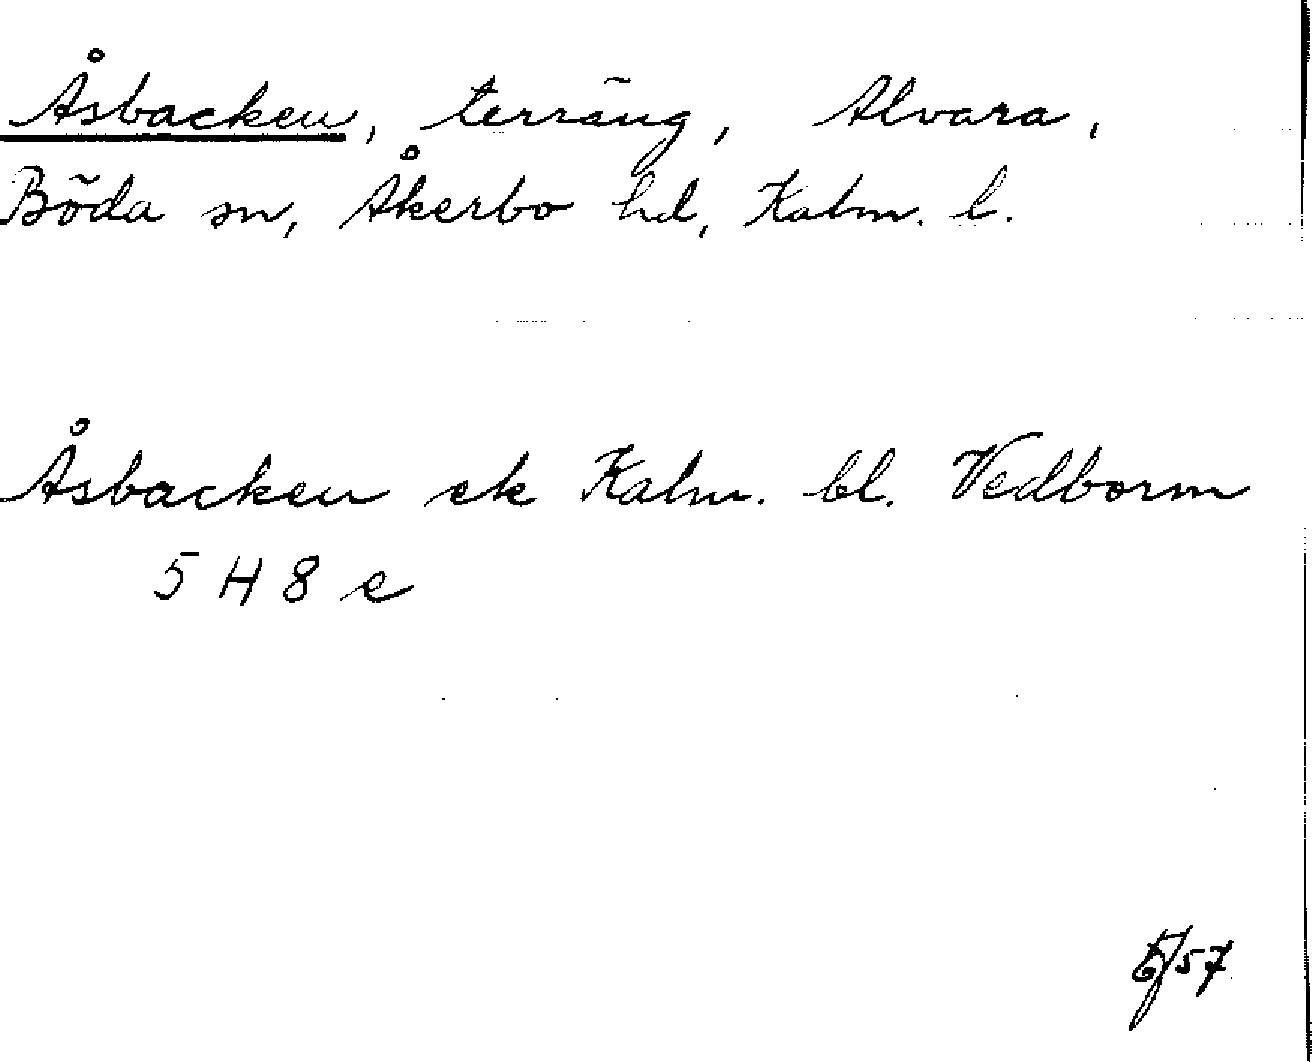 Åsbacken, terräng, Alvara,
Böda sn, Åkerbo hd, Kalm. l.
Åsbacken ek Kalm. bl. Vedborm
5 H 8 e